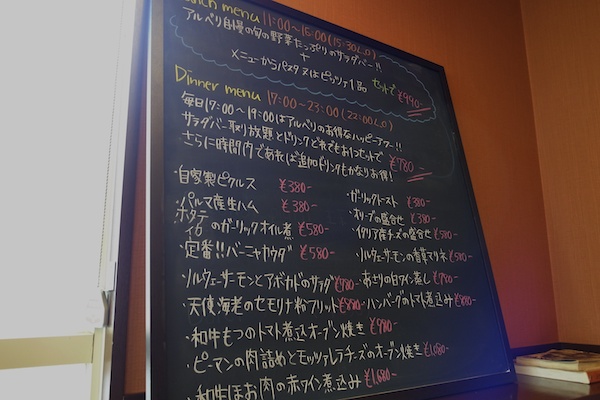 Lunch menu 11:00～15:00(15:30L.O)
アルペリ自慢の旬の野菜たっぷりのサラダバー!!
+
メニューからパスタ又はピッツァ1品 セットで ¥990-
Dinner menu 17:00～23:00(22:00L.O)
毎日17:00～19:00はアルペリのお得なハッピアワー!!
サラダバー取り放題とドリンクどれでもお1つセットで
さらに時間内であれば追加ドリンクもかなりお得! ¥780-
・自家製ピクルス ¥380-
・ガーリックトースト ¥380-
・パルマ産生ハム ¥380-
・オリーブの盛合せ ¥380-
・ホタテ のガーリックオイル煮 ¥580-
・イタリア産チーズの盛合せ ¥580-
・定番!!バーニャカウダ ¥580-
・ソルウェーサーモンの香草マリネ ¥580-
・ソルウェーサーモンとアボカドのサラダ ¥780-
・あさりの白ワイン蒸し ¥780-
・天使海老のセモリナ粉フリット ¥880-
・ハンバーグのトマト煮込み ¥880-
・和牛もつのトマト煮込オーブン焼き ¥980-
・ピーマンの肉詰めとモッツァレラチーズのオーブン焼き ¥1,080-
・和牛ほお肉の赤ワイン煮込み ¥1,680-